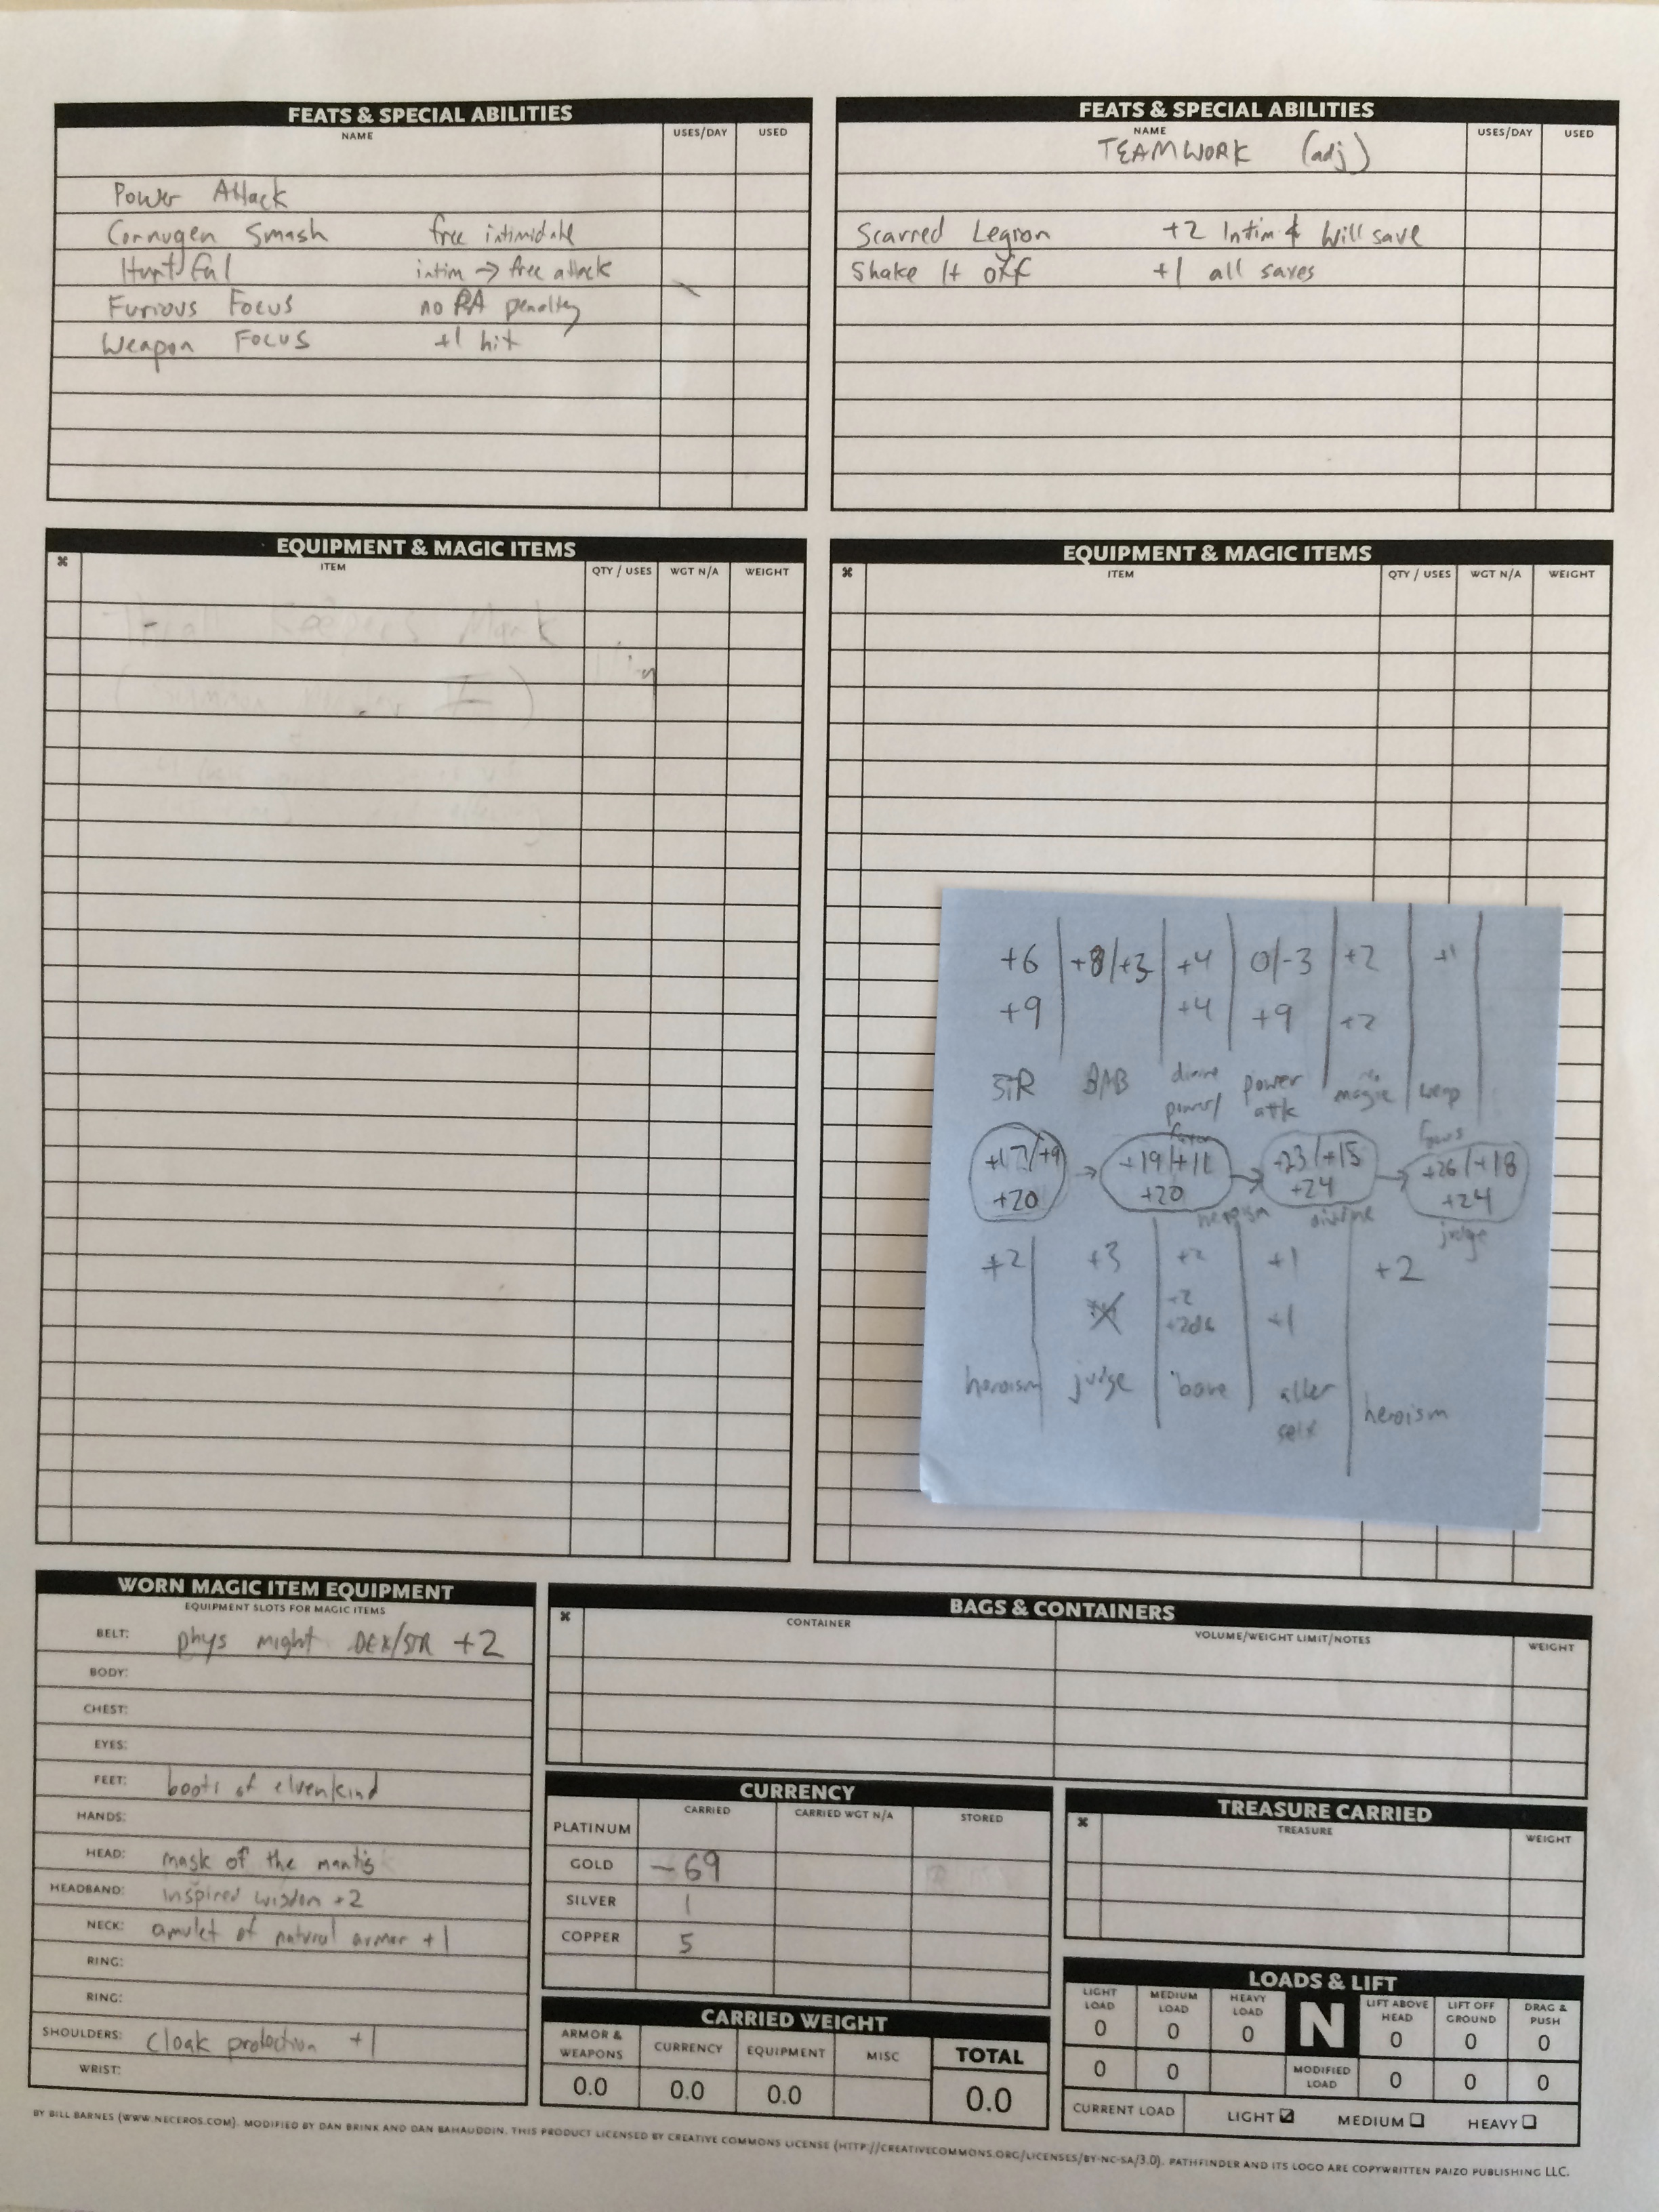 FEATS & SPECIAL ABILITIES
NAME USES/DAY USED
Power Attack
Cornugen Smash free intimidate
Hurtful intim → free attack
Furious Focus no PA penalty
Weapon Focus +1 hit
FEATS & SPECIAL ABILITIES
NAME USES/DAY USED
TEAMWORK (adj)
Scarred Legion +2 Intim & Will save
Shake It off +1 all saves
EQUIPMENT & MAGIC ITEMS
ITEM QTY / USES WGT N/A WEIGHT
EQUIPMENT & MAGIC ITEMS
ITEM QTY / USES WGT N/A WEIGHT
+6 +8/+3 +4 0/-3 +2 +1
+9 +4 +9 +2
STR BAB divine power/ favor power attk magic weap focus
+17/+9 → +19/+11 → +23/+15 → +26/+18
+20 +20 +24 +24
heroism divine judge
+2 +3 +2 +1 +2
+2 +2d6 +1
heroism judge bane alter self heroism
WORN MAGIC ITEM EQUIPMENT
EQUIPMENT SLOTS FOR MAGIC ITEMS
BELT: phys might DEX/STR +2
BODY:
CHEST:
EYES:
FEET: boots of elvenkind
HANDS:
HEAD: mask of the mantis
HEADBAND: inspired wisdom +2
NECK: amulet of natural armor +1
RING:
RING:
SHOULDERS: cloak protection +1
WRIST:
BAGS & CONTAINERS
CONTAINER VOLUME/WEIGHT LIMIT/NOTES WEIGHT
CURRENCY
CARRIED CARRIED WGT N/A STORED
PLATINUM
GOLD -69
SILVER 1
COPPER 5
TREASURE CARRIED
TREASURE WEIGHT
CARRIED WEIGHT
ARMOR & WEAPONS CURRENCY EQUIPMENT MISC TOTAL
0.0 0.0 0.0 0.0
LOADS & LIFT
LIGHT LOAD MEDIUM LOAD HEAVY LOAD N LIFT ABOVE HEAD LIFT OFF GROUND DRAG & PUSH
0 0 0 0 0 0
0 0 MODIFIED LOAD 0 0 0
CURRENT LOAD LIGHT MEDIUM HEAVY
BY BILL BARNES (WWW.NECEROS.COM). MODIFIED BY DAN BRINK AND DAN BAHAUDDIN. THIS PRODUCT LICENSED BY CREATIVE COMMONS LICENSE (HTTP://CREATIVECOMMONS.ORG/LICENSES/BY-NC-SA/3.0). PATHFINDER AND ITS LOGO ARE COPYWRITTEN PAIZO PUBLISHING LLC.